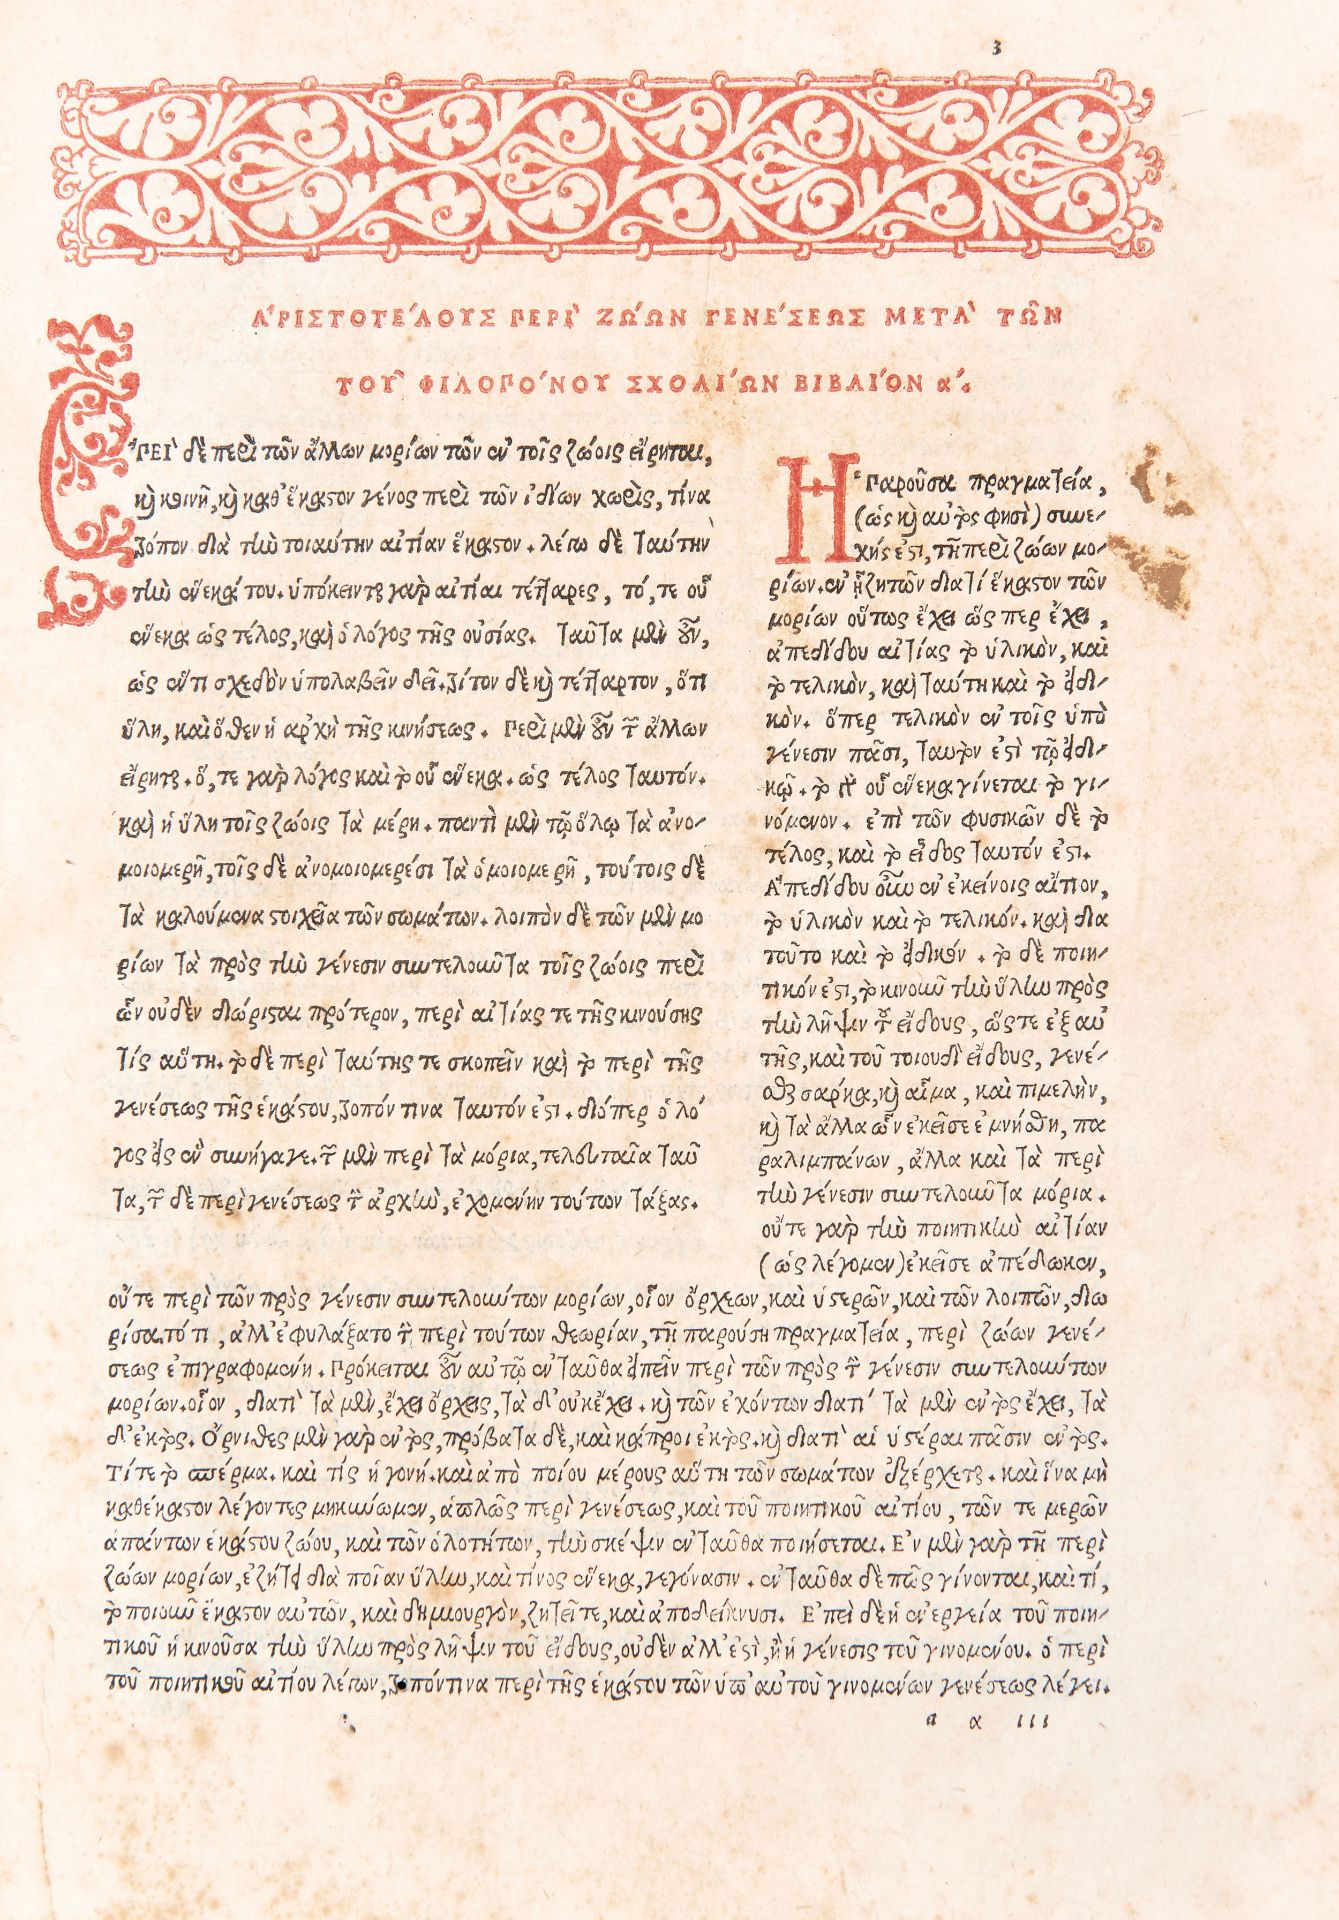 3
ἈΡΙΣΤΟΤΈΛΟΥΣ ΠΕΡῚ ΖΏΩΝ ΓΕΝΈΣΕΩΣ ΜΕΤᾺ ΤΩ͂Ν
ΤΟΥ͂ ΦΙΛΟΠΌΝΟΥ ΣΧΟΛΊΩΝ ΒΙΒΛΊΟΝ α΄.
ἘΠΕῚ δὲ περὶ τῶν ἄλλων μορίων τῶν ἐν τοῖς ζώοις εἴρηται,
καὶ κοινῆ, καὶ καθ' ἕκαστον γένος περὶ τῶν ἰδίων χωρὶς, τίνα
τρόπον διὰ τὴν τοιαύτην αἰτίαν ἕκαστον. λέγω δὲ ταύτην
τὴν ἕνεκά του. ὑπόκεινται γὰρ αἰτίαι τέτταρες, τό, τε οὗ
ἕνεκα ὡς τέλος, καὶ ὁ λόγος τῆς οὐσίας. ταῦτα μὲν οὖν,
ὡς ἕν τι σχεδὸν ὑπολαβεῖν δεῖ. τρίτον δὲ καὶ τέταρτον, ὅτι
ὕλη, καὶ ὅθεν ἡ ἀρχὴ τῆς κινήσεως. Περὶ μὲν οὖν τῶν ἄλλων
εἴρηται. ὅ, τε γὰρ λόγος καὶ τὸ οὗ ἕνεκα. ὡς τέλος ταυτόν.
καὶ ἡ ὕλη τοῖς ζώοις τὰ μέρη. παντὶ μὲν τῷ ὅλῳ τὰ ἀνο-
μοιομερῆ, τοῖς δὲ ἀνομοιομερέσι τὰ ὁμοιομερῆ, τούτοις δὲ
τὰ καλούμενα στοιχεῖα τῶν σωμάτων. λοιπὸν δὲ τῶν μὲν μο
ρίων τὰ πρὸς τὴν γένεσιν συντελοῦντα τοῖς ζώοις περὶ
ὧν οὐδὲν διώρισται πρότερον, περὶ αἰτίας τε τῆς κινούσης
τίς αὕτη. τὸ δὲ περὶ ταύτης τε σκοπεῖν καὶ τὸ περὶ τῆς
γενέσεως τῆς ἑκάστου, τρόπόν τινα ταυτόν ἐστι. διόπερ ὁ λό
γος εἰς ἓν συνήγαγε. τῶν μὲν περὶ τὰ μόρια, τελευταῖα ταῦ
τα, τῶν δὲ περὶ γενέσεως τὴν ἀρχὴν, ἐχομένην τούτων τάξας.
Ἡ Παροῦσα πραγματεία,
(ὡς καὶ αὐτὸς φησὶ) συνε-
χής ἐστι, τῇ περὶ ζώων μο-
ρίων. ἐν ᾗ ζητῶν διατί ἕκαστον τῶν
μορίων οὕτως ἔχει ὥς περ ἔχει,
ἀπεδίδου αἰτίας τὸ ὑλικὸν, καὶ
τὸ τελικὸν, καὶ ταύτη καὶ τὸ εἰδι-
κὸν. ὅπερ τελικὸν ἐν τοῖς ὑπὸ
γένεσιν πᾶσι, ταυτὸν ἐστὶ τῷ εἰδι-
κῷ. τὸ γὰρ οὗ ἕνεκα γίνεται τὸ γι-
νόμενον. ἐπὶ τῶν φυσικῶν δὲ τὸ
τέλος, καὶ τὸ εἶδος ταυτόν ἐστι.
Ἀπεδίδου οὖν ἐν ἐκείνοις αἴτιον,
τὸ ὑλικὸν καὶ τὸ τελικόν. καὶ δια
τοῦτο καὶ τὸ εἰδικόν. τὸ δὲ ποιη-
τικόν ἐστι, τὸ κινοῦν τὴν ὕλην πρὸς
τὴν λῆψιν τοῦ εἴδους, ὥςτε ἐξ αὐ
τῆς, καὶ τοῦ τοιουδὶ εἴδους, γενέ-
σθαι σάρκα, καὶ αἷμα, καὶ πιμελὴν,
καὶ τὰ ἄλλα ὧν ἐκεῖσε ἐμνήσθη, πα
ραλιμπάνων, ἄλλα καὶ τὰ περὶ
τὴν γένεσιν συντελοῦντα μόρια.
οὔτε γὰρ τὴν ποιητικὴν αἰτίαν
(ὡς λέγομεν) ἐκεῖσε ἀπέδωκεν,
οὔτε περὶ τῶν πρὸς γένεσιν συντελούντων μορίων, οἷον ὄρχεων, καὶ ὑστερῶν, καὶ τῶν λοιπῶν, διω
ρίσατό τι, ἀλλ' ἐφυλάξατο τὴν περὶ τούτων θεωρίαν, τῇ παρούσῃ πραγματεία, περὶ ζώων γενέ-
σεως ἐπιγραφομένη. Πρόκειται οὖν αὐτῷ ἐνταῦθα εἰπεῖν περὶ τῶν πρὸς τὴν γένεσιν συντελούντων
μορίων. οἷον, διατὶ τὰ μὲν, ἔχει ὄρχεις, τὰ δ' οὐκ ἔχει. καὶ τῶν ἐχόντων διατί τὰ μὲν ἐντὸς ἔχει, τὰ
δ' ἐκτὸς. Ὄρνιθες μὲν γὰρ ἐντὸς, πρόβατα δὲ, καὶ κάπροι ἐκτὸς. καὶ διατὶ αἱ ὑστέραι πᾶσιν ἐντὸς.
Τί τε τὸ σπέρμα. καὶ τίς ἡ γονή. καὶ ἀπὸ ποίου μέρους αὕτη τῶν σωμάτων ἐξέρχεται. καὶ ἵνα μὴ
καθέκαστον λέγοντες μηκύνωμεν, ἁπλῶς περὶ γενέσεως, καὶ τοῦ ποιητικοῦ αἰτίου, τῶν τε μερῶν
ἁπάντων ἑκάστου ζώου, καὶ τῶν ὁλοτήτων, τὴν σκέψιν ἐνταῦθα ποιήσεται. Ἐν μὲν γὰρ τῇ περὶ
ζώων μορίων, ἐζήτει διὰ ποῖαν ὕλην, καὶ τίνος ἕνεκα, γεγόνασιν. ἐνταῦθα δὲ πῶς γίνονται, καὶ τί,
τὸ ποιοῦν ἕκαστον αὐτῶν, καὶ δημιουργὸν, ζητεῖ τε, καὶ ἀποδείκνυσι. Ἐπεὶ δὲ ἡ ἐνεργεία τοῦ ποιη-
τικοῦ ἡ κινοῦσα τὴν ὕλην πρὸς λῆψιν τοῦ εἴδους, οὐδὲν ἀλλ' ἐστὶ, ἢ ἡ γένεσις τοῦ γινομένου. ὁ περὶ
τοῦ ποιητικοῦ αἰτίου λέγων, τρόπόν τινα περὶ τῆς ἑκάστου τῶν ὑπ' αὐτοῦ γινομένων γενέσεως λέγει.
a α iii